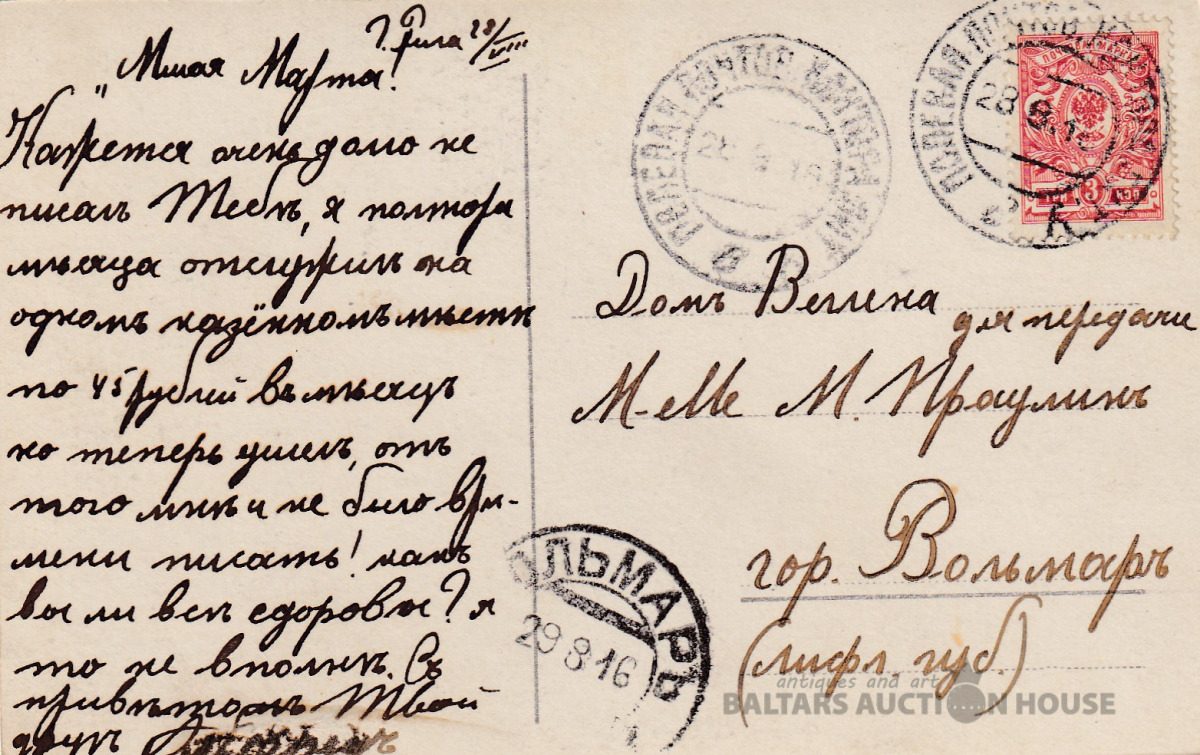 г. Рига 28/VIII
„Милая Марта!
Кажется очень долго не
писалъ Тебѣ, я полтора
мѣсяца отслужилъ на
одномъ казённомъ мѣстѣ
по 45 рублей въ мѣсяцъ
но теперь ушелъ, отъ
того мнѣ и не было вре-
мени писать! какъ
вы ли всѣ здоровы? я
то не вполнѣ. Съ
привѣтомъ Твой
другъ
ПОЛЕВАЯ ПОЧТОВ. КОНТОРА
28 8 16
ПОЛЕВАЯ ПОЧТОВ. КОНТОРА
28 8.16
ПОЧТОВАЯ МАРКА
3
Домъ Веллена
для передачи
М-elle М. Праулинъ
гор. Вольмаръ
(лифл. губ.)
ОЛЬМАРЪ
29 8 16
antiques and art
BALTARS AUCTION HOUSE